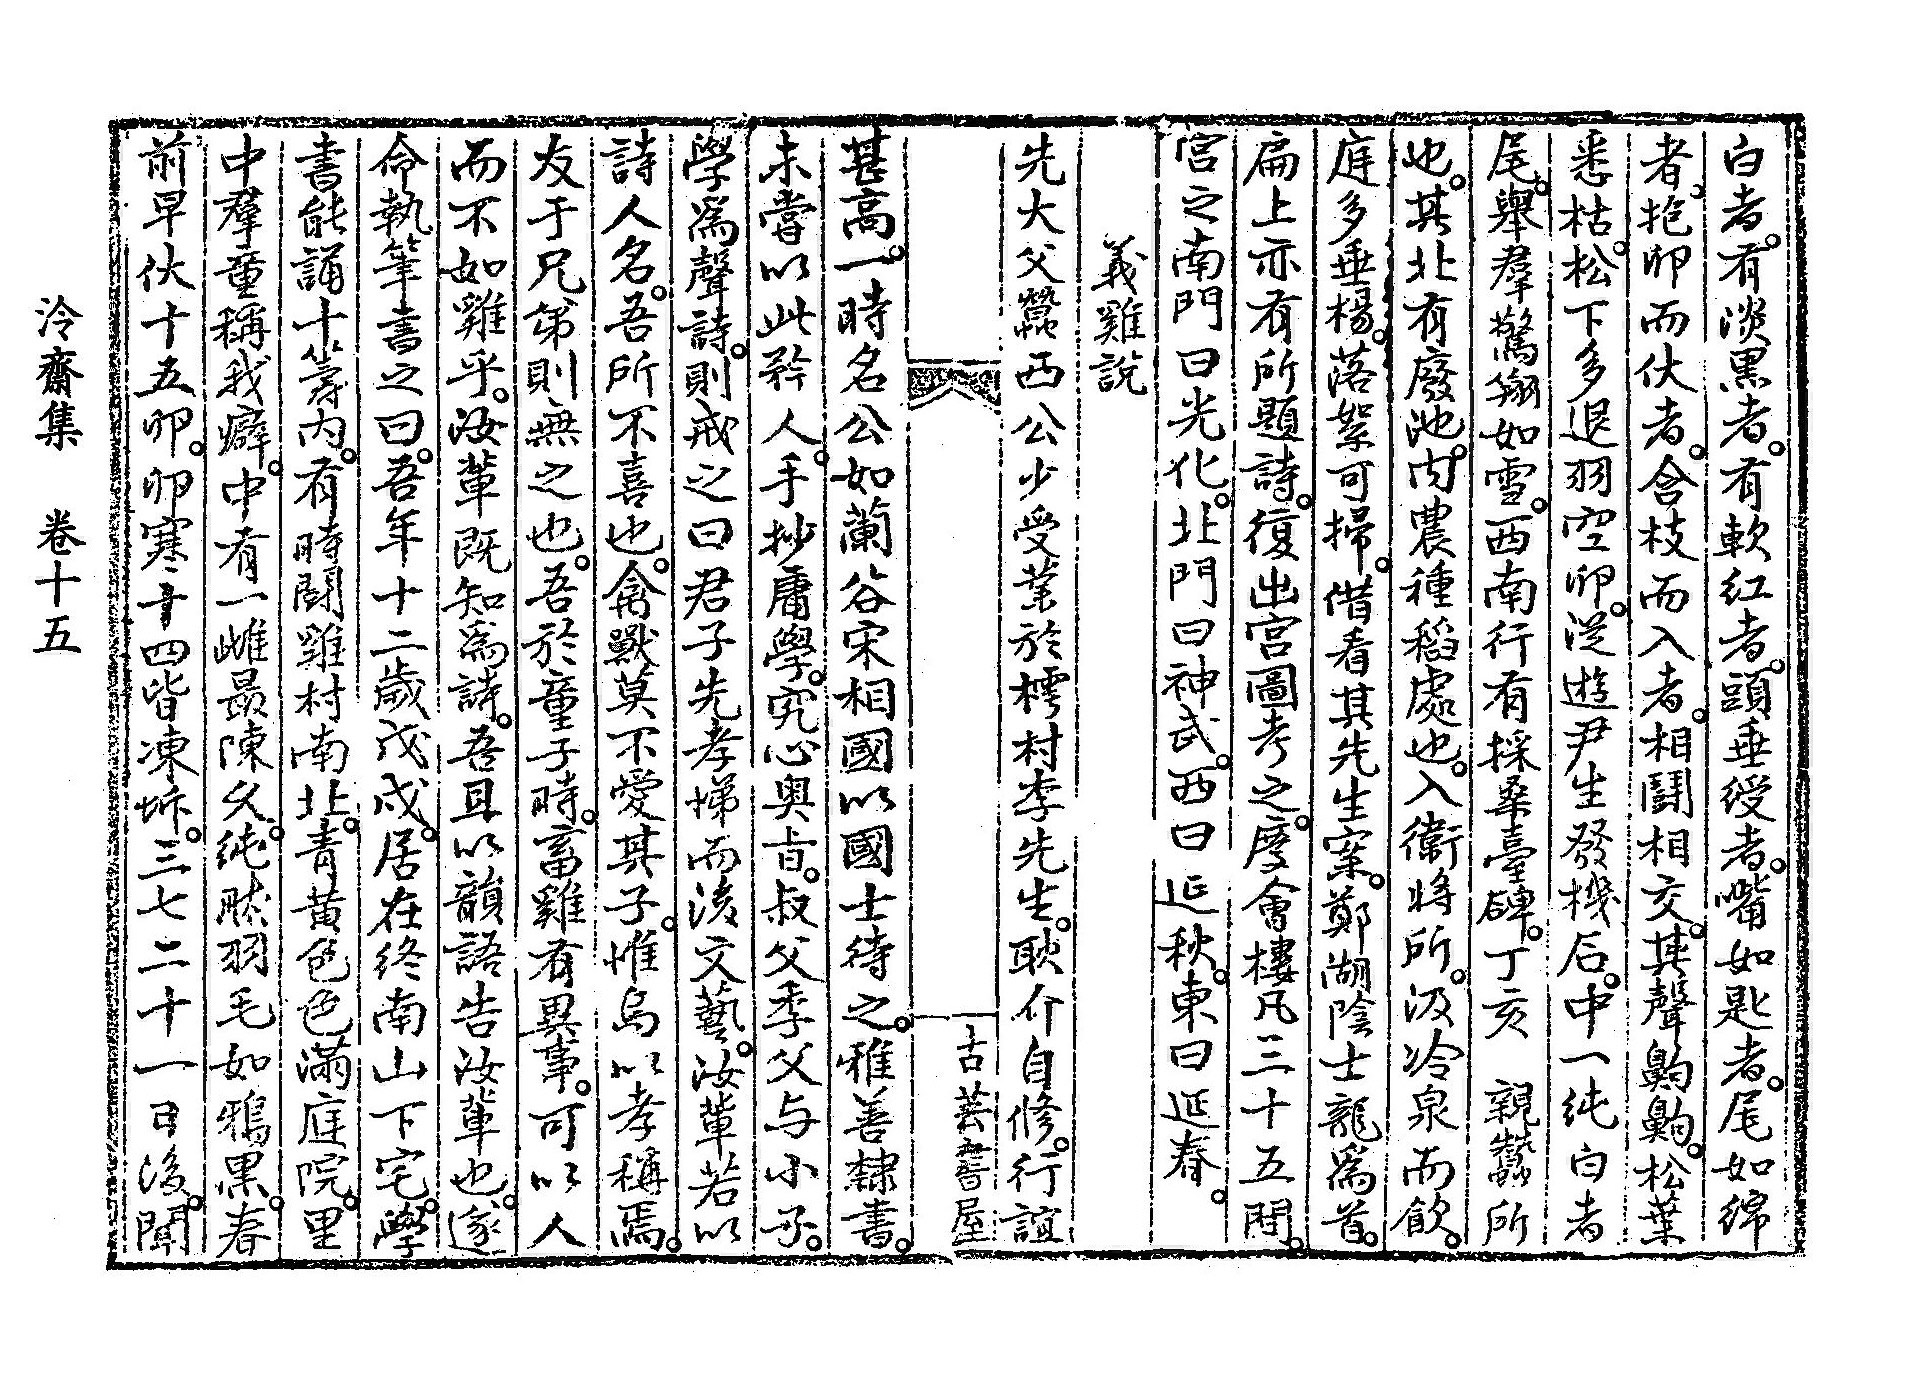 白者。有淡黑者。有軟紅者。頭垂綬者。嘴如匙者。尾如綿
者。抱卵而伏者。含枝而入者。相鬪相交。其聲齁齁。松葉
悉枯。松下多退羽空卵。從遊尹生發機石。中一純白者
尾。擧羣驚翔如雪。西南行有採桑臺碑。丁亥 親蠶所
也。其北有廢池。內農種稻處也。入衛將所。汲冷泉而飮。
庭多垂楊。落絮可掃。借看其先生案。鄭湖陰士龍爲首。
扁上亦有所題詩。復出宮圖考之。慶會樓凡三十五間。
宮之南門曰光化。北門曰神武。西曰延秋。東曰延春。
義雞說
先大父蠶西公少受業於樗村李先生。耿介自修。行誼
古芸書屋
甚高。一時名公如蘭谷宋相國以國士待之。雅善隸書。
未嘗以此矜人。手抄庸學。究心奧旨。叔父季父与小子。
學爲聲詩。則戒之曰君子先孝悌而後文藝。汝輩若以
詩人名。吾所不喜也。禽獸莫不愛其子。惟烏以孝稱焉。
友于兄弟則無之也。吾於童子時。畜雞有異事。可以人
而不如雞乎。汝輩旣知爲詩。吾且以韻語告汝輩也。遂
命執筆書之曰。吾年十二歲戊戌。居在終南山下宅。學
書能誦十筭內。有時鬪雞村南北。靑黃色色滿庭院。里
中羣童稱我癖。中有一雌最陳久。純然羽毛如鴉黑。春
前早伏十五卵。卵寒十四皆凍坼。三七二十一日後。聞
泠齋集 卷十五